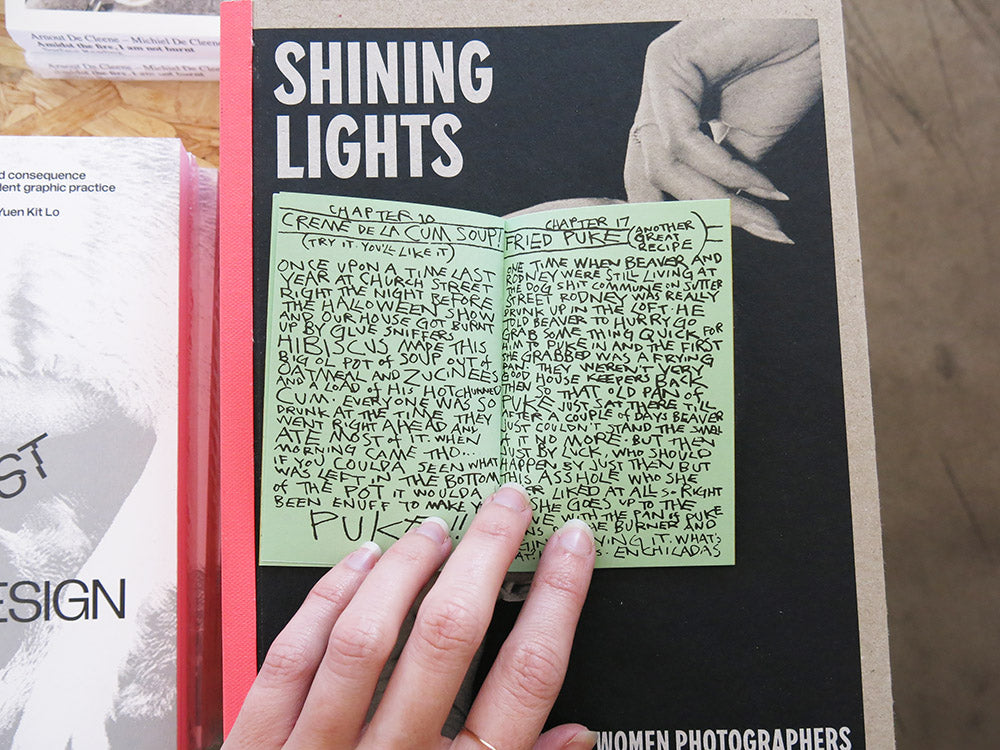 Arnout De Cleene – Michiel De Cleene
Amidst the fire, I am not burnt
Arnout De Cleene – Michiel De Cleene
Amidst the fire, I am not burnt
d consequence
dent graphic practice
Yuen Kit Lo
ST
ESIGN
SHINING
LIGHTS
CHAPTER 10
CREME DE LA CUM SOUP!
(TRY IT. YOU'LL LIKE IT)
ONCE UPON A TIME LAST
YEAR AT CHURCH STREET
RIGHT THE NIGHT BEFORE
THE HALLOWEEN SHOW
AND OUR HOUSE GOT BURNT
UP BY GLUE SNIFFERS
HIBISCUS MADE THIS
BIG OL POT of SOUP OUT of
OATMEAL AND ZUCINEES
AND A LOAD of HIS HOT CHUNNED
CUM. EVERYONE WAS SO
DRUNK AT THE TIME THEY
WENT RIGHT AHEAD AND
ATE MOST of IT. WHEN
MORNING CAME THO...
IF YOU COULDA SEEN WHAT
WAS LEFT IN THE BOTTOM
of THE POT IT WOULDA
BEEN ENUFF TO MAKE
PUKE!!
CHAPTER 17
FRIED PUKE (ANOTHER GREAT RECIPE)
ONE TIME WHEN BEAVER AND
RODNEY WERE STILL LIVING AT
THE DOG SHIT COMMUNE ON SUTTER
STREET RODNEY WAS REALLY
DRUNK UP IN THE LOFT. HE
TOLD BEAVER TO HURRY GO
GRAB SOME THING QUICK FOR
HIM TO PUKE IN AND THE FIRST
SHE GRABBED WAS A FRYING
PAN. THEY WEREN'T VERY
GOOD HOUSE KEEPERS BACK
THEN SO THAT OLD PAN of
PUKE JUST SAT THERE TILL
AFTER A COUPLE of DAYS BEAVER
JUST COULDN'T STAND THE SMELL
of IT NO MORE. BUT THEN
JUST BY LUCK, WHO SHOULD
HAPPEN BY JUST THEN BUT
THIS ASSHOLE WHO SHE
LIKED AT ALL SO RIGHT
SHE GOES UP TO THE
WITH THE PAN of PUKE
THE BURNER AND
FRYING IT. WHAT'S
ENCHILADAS
WOMEN PHOTOGRAPHERS